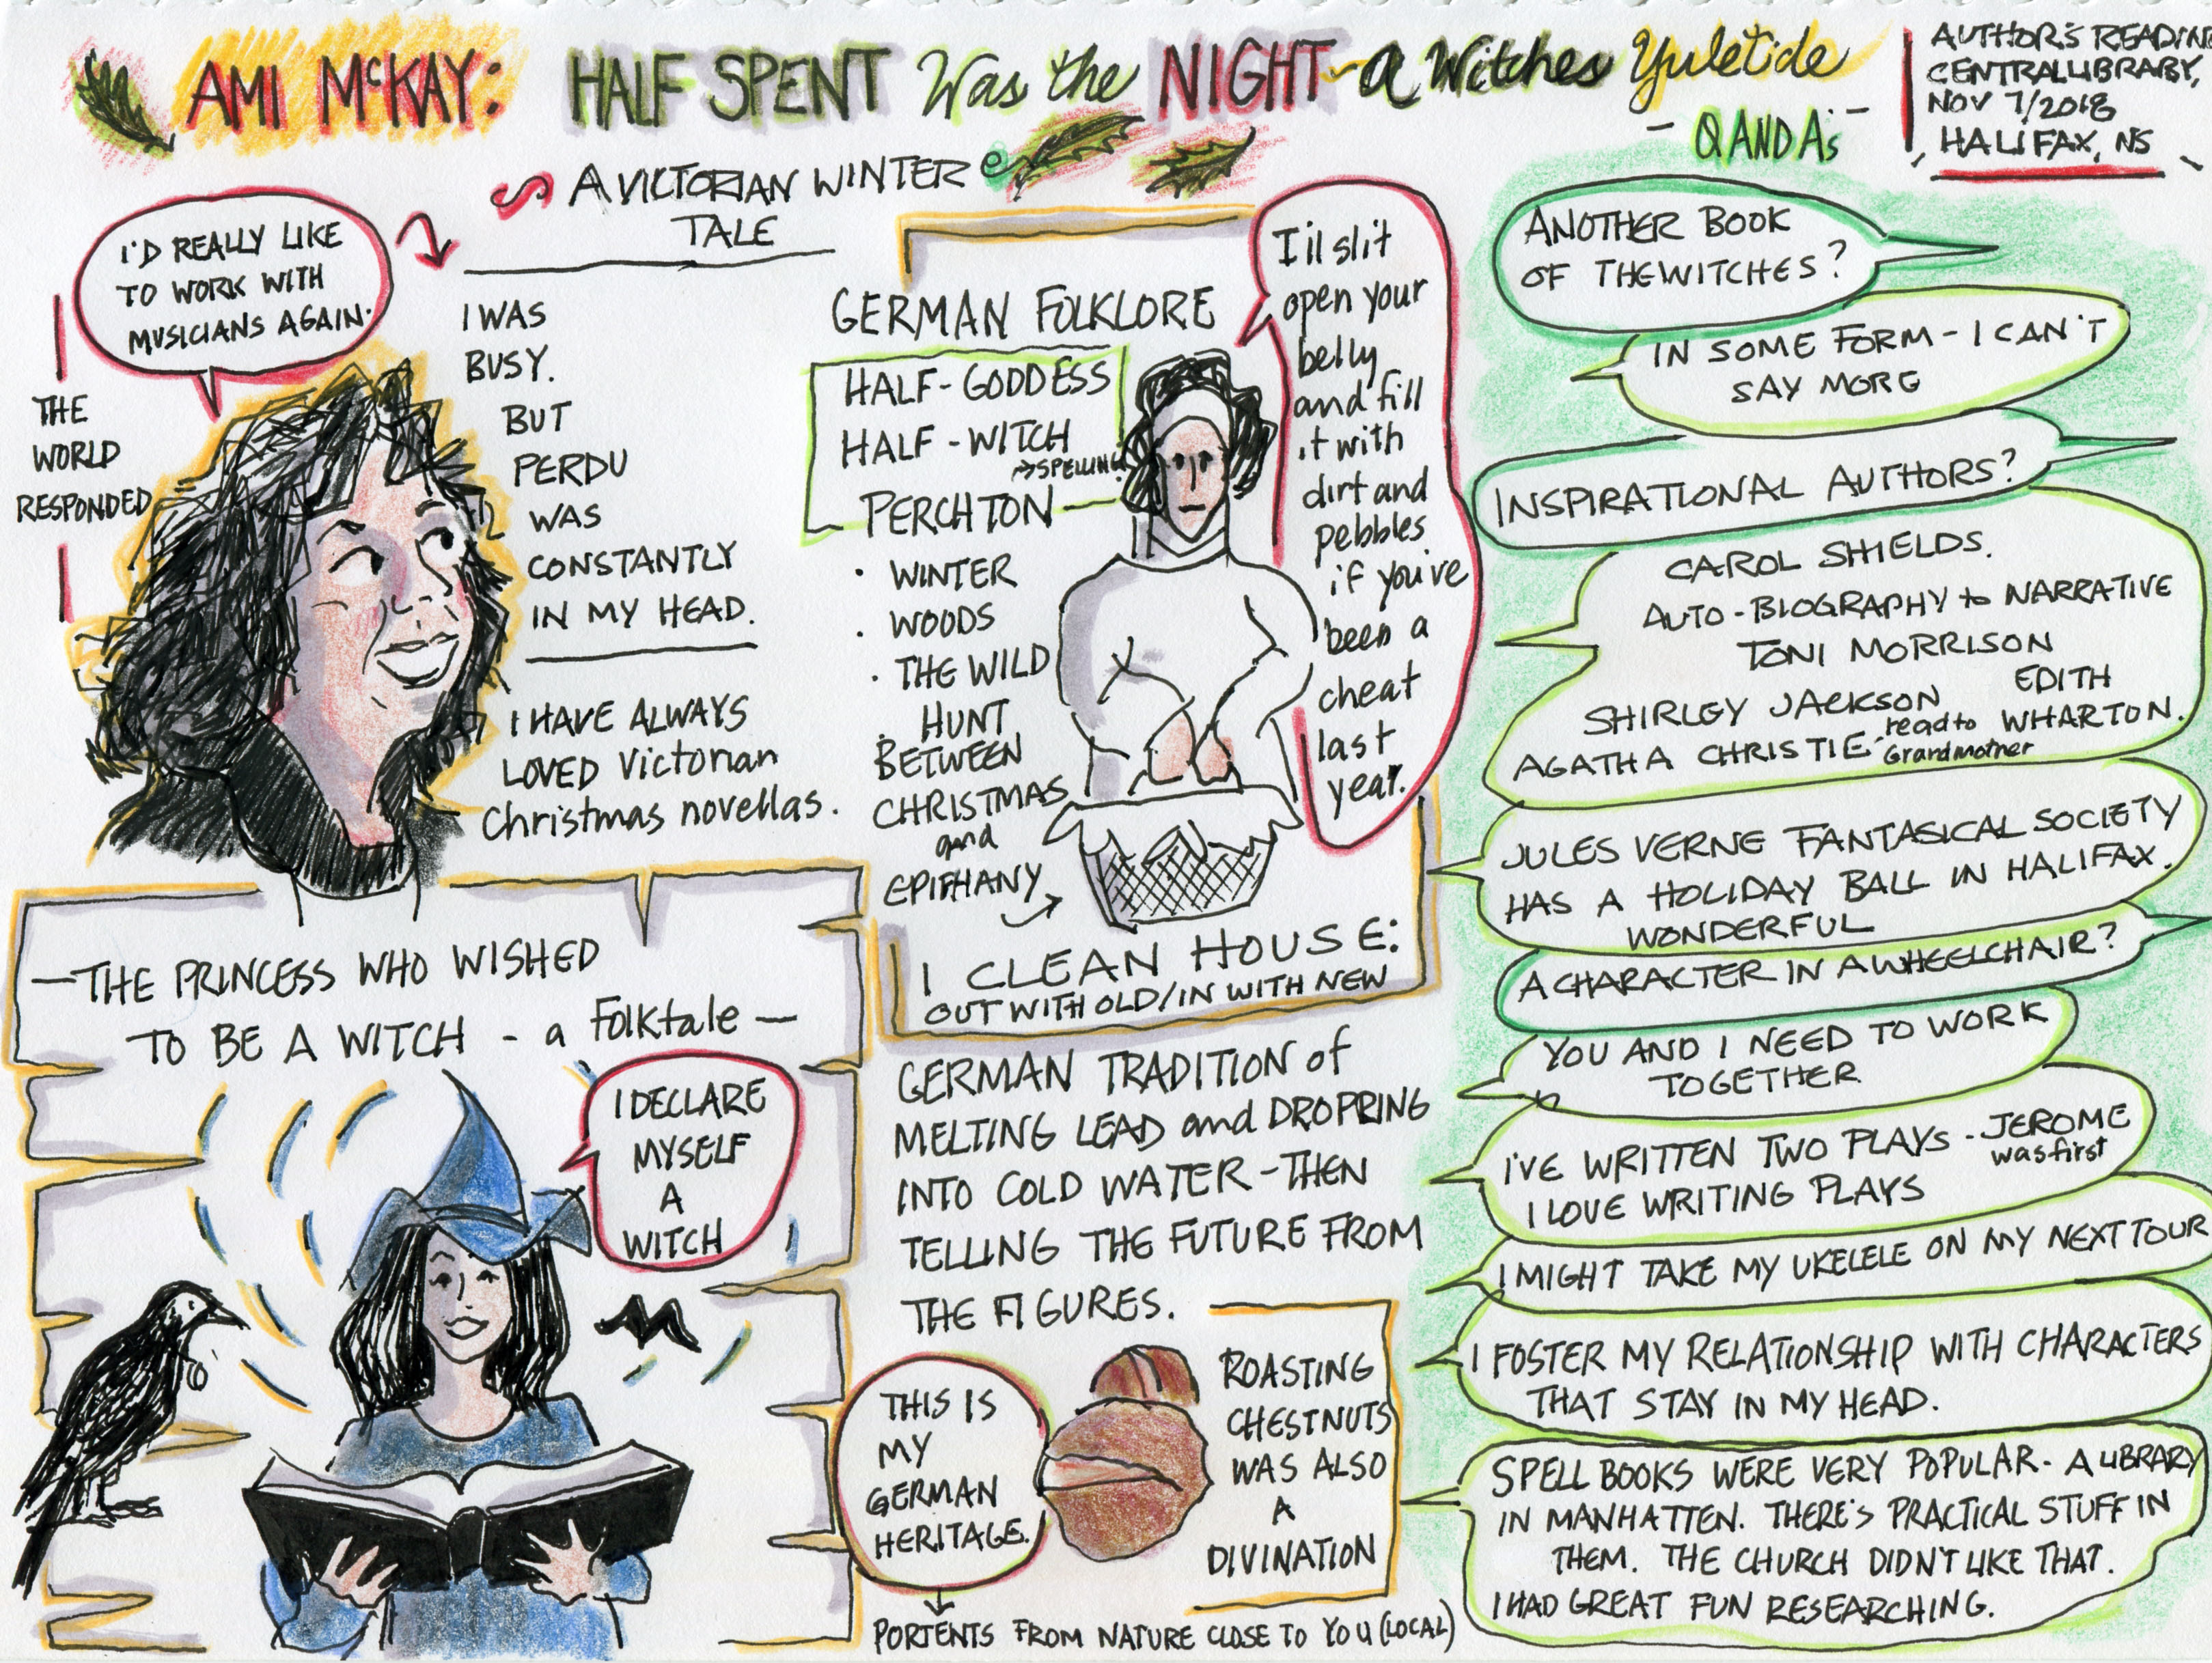 AMI McKAY: HALF SPENT Was the NIGHT - a Witches Yuletide
- Q AND A's -
AUTHOR'S READING
CENTRAL LIBRARY,
NOV 7/2018
HALIFAX, NS
A VICTORIAN WINTER
TALE
I'D REALLY LIKE
TO WORK WITH
MUSICIANS AGAIN.
THE
WORLD
RESPONDED
I WAS
BUSY.
BUT
PERDU
WAS
CONSTANTLY
IN MY HEAD.
I HAVE ALWAYS
LOVED Victorian
Christmas novellas.
- THE PRINCESS WHO WISHED
TO BE A WITCH - a Folktale -
I DECLARE
MYSELF
A
WITCH
GERMAN FOLKLORE
HALF-GODDESS
HALF-WITCH
→SPELLING?
PERCHTON
• WINTER
• WOODS
• THE WILD
HUNT
• BETWEEN
CHRISTMAS
and
EPIPHANY
I'll slit
open your
belly
and fill
it with
dirt and
pebbles
if you've
been a
cheat
last
year.
I CLEAN HOUSE:
OUT WITH OLD/IN WITH NEW
GERMAN TRADITION of
MELTING LEAD and DROPPING
INTO COLD WATER - THEN
TELLING THE FUTURE FROM
THE FIGURES.
THIS IS
MY
GERMAN
HERITAGE.
ROASTING
CHESTNUTS
WAS ALSO
A
DIVINATION
PORTENTS FROM NATURE CLOSE TO YOU (LOCAL)
ANOTHER BOOK
OF THE WITCHES?
IN SOME FORM - I CAN'T
SAY MORE
INSPIRATIONAL AUTHORS?
CAROL SHIELDS.
AUTO-BIOGRAPHY to NARRATIVE
TONI MORRISON
SHIRLEY JACKSON
EDITH
WHARTON.
AGATHA CHRISTIE - read to
Grandmother
JULES VERNE FANTASICAL SOCIETY
HAS A HOLIDAY BALL IN HALIFAX.
WONDERFUL
A CHARACTER IN A WHEELCHAIR?
YOU AND I NEED TO WORK
TOGETHER
I'VE WRITTEN TWO PLAYS - JEROME
was first
I LOVE WRITING PLAYS
I MIGHT TAKE MY UKELELE ON MY NEXT TOUR
I FOSTER MY RELATIONSHIP WITH CHARACTERS
THAT STAY IN MY HEAD.
SPELL BOOKS WERE VERY POPULAR - A LIBRARY
IN MANHATTEN. THERE'S PRACTICAL STUFF IN
THEM. THE CHURCH DIDN'T LIKE THAT.
I HAD GREAT FUN RESEARCHING.